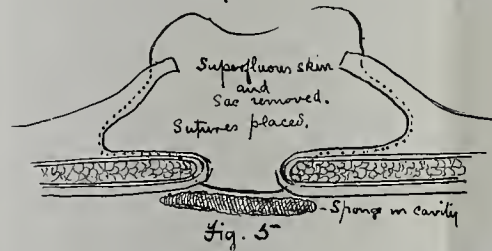 Superfluous skin
and
Sac removed.
Sutures placed.
- Sponge in cavity
Fig. 5